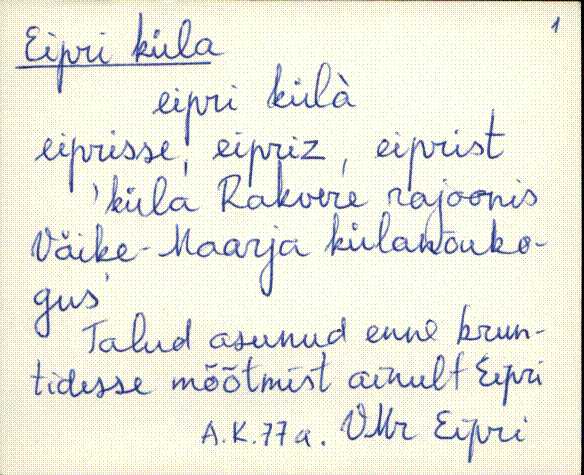 1
Eipri küla
eipri külà
eiprisse, eipriz, eiprist
'küla Rakvere rajoonis
Väike-Maarja külanõuko-
gus'
Talud asunud enne krun-
tidesse mõõtmist ainult Eipri
A.K. 77 a. VMr Eipri